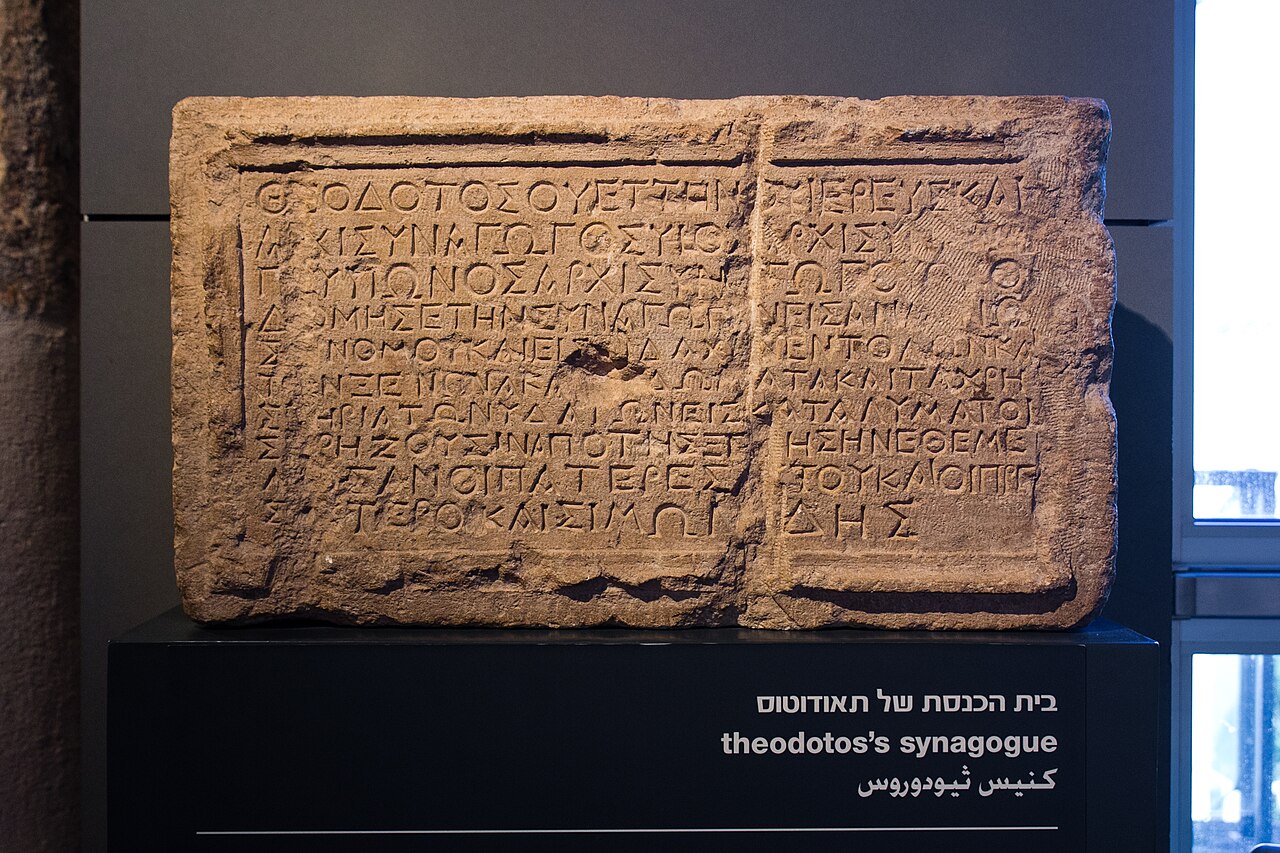 ΘΕΟΔΟΤΟΣ ΟΥΕΤΤΕΝΟΥ ΙΕΡΕΥΣ ΚΑΙ
ΑΡΧΙΣΥΝΑΓΩΓΟΣ ΥΙΟΣ ΑΡΧΙΣΥΝ
ΥΙΩΝΟΣ ΑΡΧΙΣΥΝΑΓΩΓΟΥ ΩΚΟ
ΔΟΜΗΣΕ ΤΗΝ ΣΥΝΑΓΩΓΗΝ ΕΙΣ
ΝΟΜΟΥ ΚΑΙ ΕΙΣ ΔΙΔΑΧΗΝ ΕΝΤΟΛΩΝ ΚΑΙ
ΤΟΝ ΞΕΝΩΝΑ ΚΑΙ ΤΑ ΔΩΜΑΤΑ ΚΑΙ ΤΑ ΧΡΗ
ΣΤΗΡΙΑ ΤΩΝ ΥΔΑΤΩΝ ΕΙΣ ΚΑΤΑΛΥΜΑ ΤΟΙ
Σ ΧΡΗΖΟΥΣΙΝ ΑΠΟ ΤΗΣ ΞΕΝΗΣ ΗΝ ΕΘΕΜΕ
ΣΑΝ ΟΙ ΠΑΤΕΡΕΣ ΑΥΤΟΥ ΚΑΙ ΟΙ ΠΡΕ
Σ ΤΕΡΟΙ ΚΑΙ ΣΙΜΩΝΙΔΗΣ
בית הכנסת של תאודוטוס
theodotos's synagogue
كنيس ثيودوروس